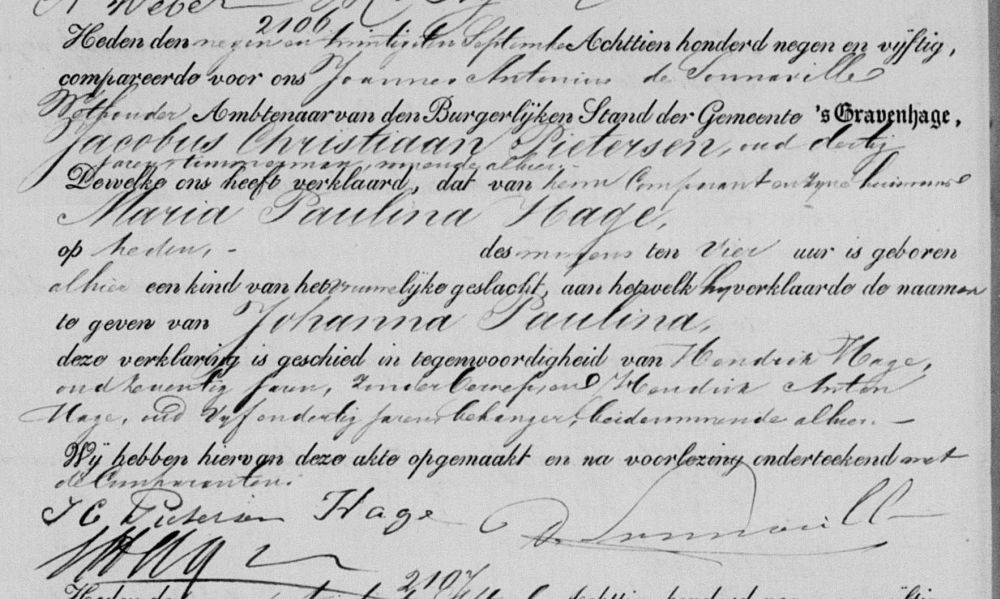 2106
Heden den negen en twintigsten September Achttien honderd negen en vijftig,
compareerde voor ons Joannes Antonius de Sonnaville
Wethouder Ambtenaar van den Burgerlijken Stand der Gemeente 's Gravenhage,
Jacobus Christiaan Pietersen, oud dertig
jaren, timmerman, wonende alhier.
Dewelke ons heeft verklaard, dat van hem Comparant en zijne huisvrouw
Maria Paulina Hage,
op heden, - des morgens ten vier uur is geboren
alhier een kind van het vrouwelijke geslacht, aan hetwelk hij verklaarde de naamen
te geven van Johanna Paulina,
deze verklaring is geschied in tegenwoordigheid van Hendrik Hage,
oud zeventig jaren, zonder beroep, en Hendrik Anton
Hage, oud vyf en dertig jaren, behanger, beiden wonende alhier. -
Wij hebben hiervan deze akte opgemaakt en na voorlezing onderteekend met
de Comparanten.
J C Pietersen Hage de Sonnaville
HA Hage
2107
Heden